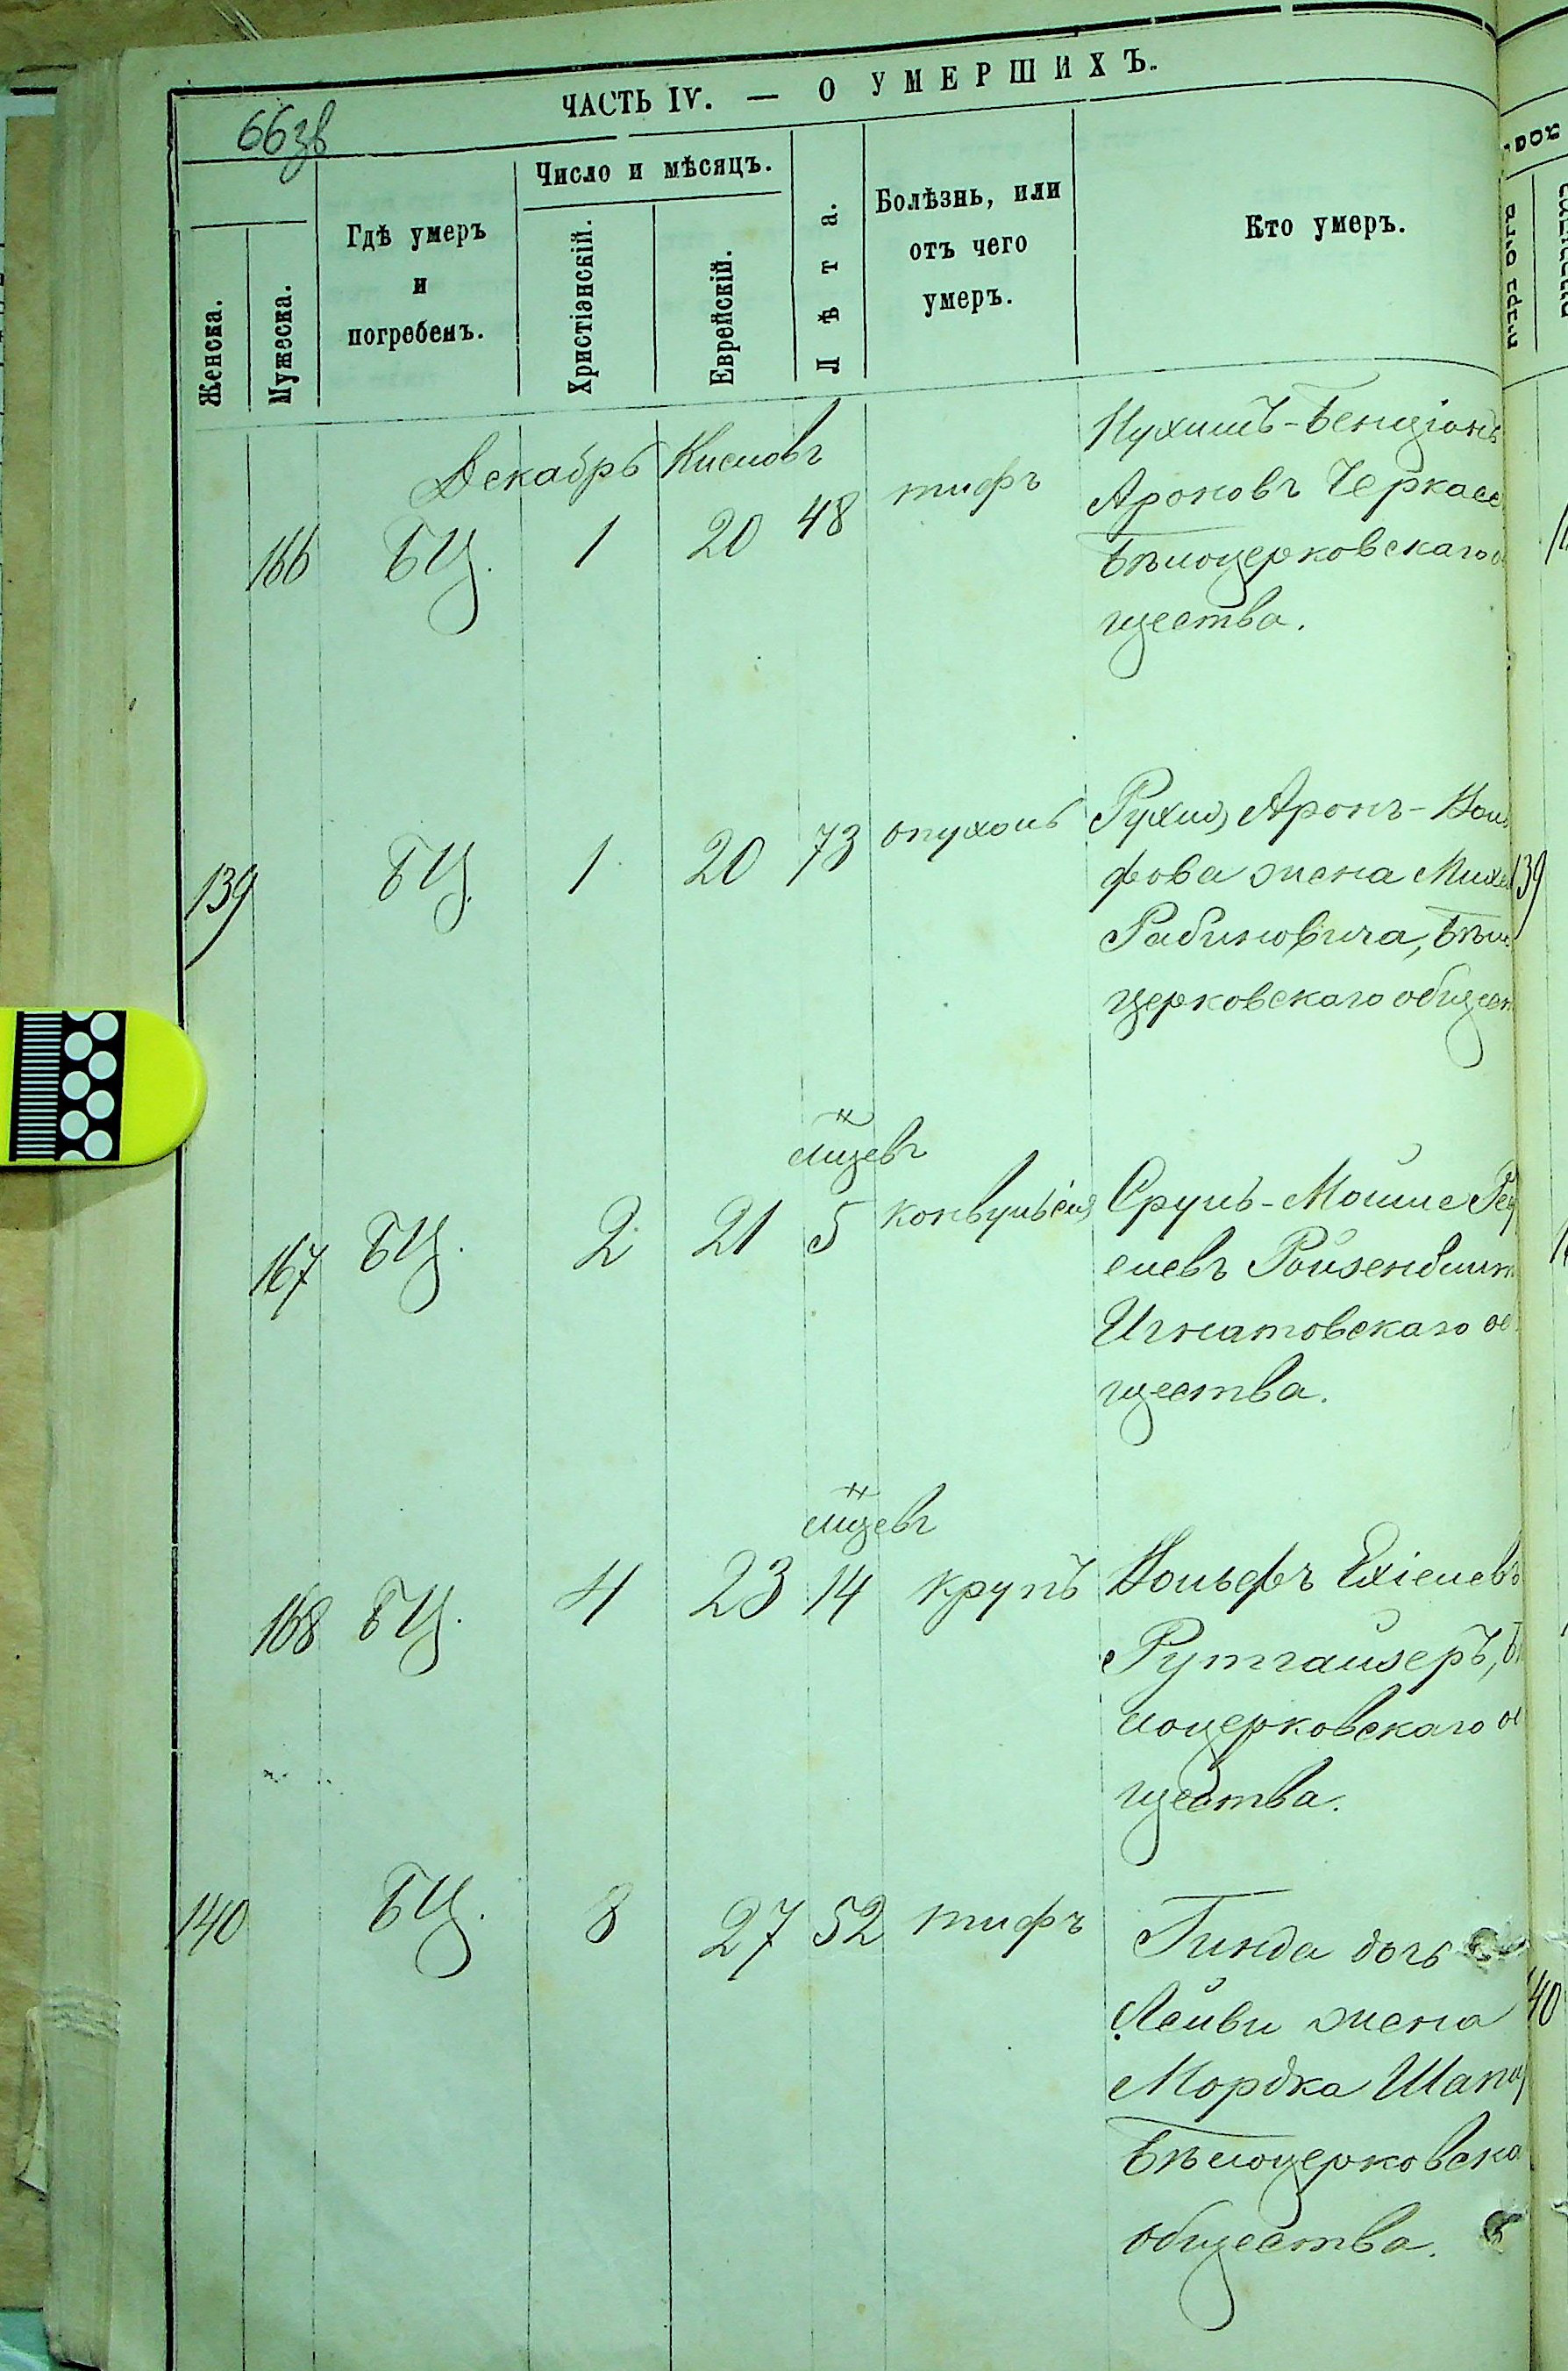 ЧАСТЬ IV. — О УМЕРШИХЪ.
66зв
Женска.
Мужеска.
Гдѣ умеръ
и
погребенъ.
Число и мѣсяцъ.
Христіанскій.
Еврейскій.
Лѣта.
Болѣзнь, или
отъ чего
умеръ.
Кто умеръ.
Декабрь Кислевъ
166 БЦ. 1 20 48 тифъ
Нухимъ-Бенціонъ
Ароновъ Черкасс
Бѣлоцерковскаго о
щества.
139 БЦ. 1 20 73 опухоль
Рухля, Аронъ-Воль
фова жена Михе
Рабиновича, Бѣло
церковскаго общест
139
мцевъ
167 БЦ. 2 21 5 конвульсія
Сруль-Мойше
елевъ Ройзенблит
Игнатовскаго об
щества.
мцевъ
168 БЦ. 4 23 14 крупъ
Вольфъ Ехіелевъ
Рутгайзеръ, Бѣ
лоцерковскаго об
щества.
140 БЦ. 8 27 52 тифъ
Гинда дочь
Лейви жена
Мордка Шапи
Бѣлоцерковска
общества.
40